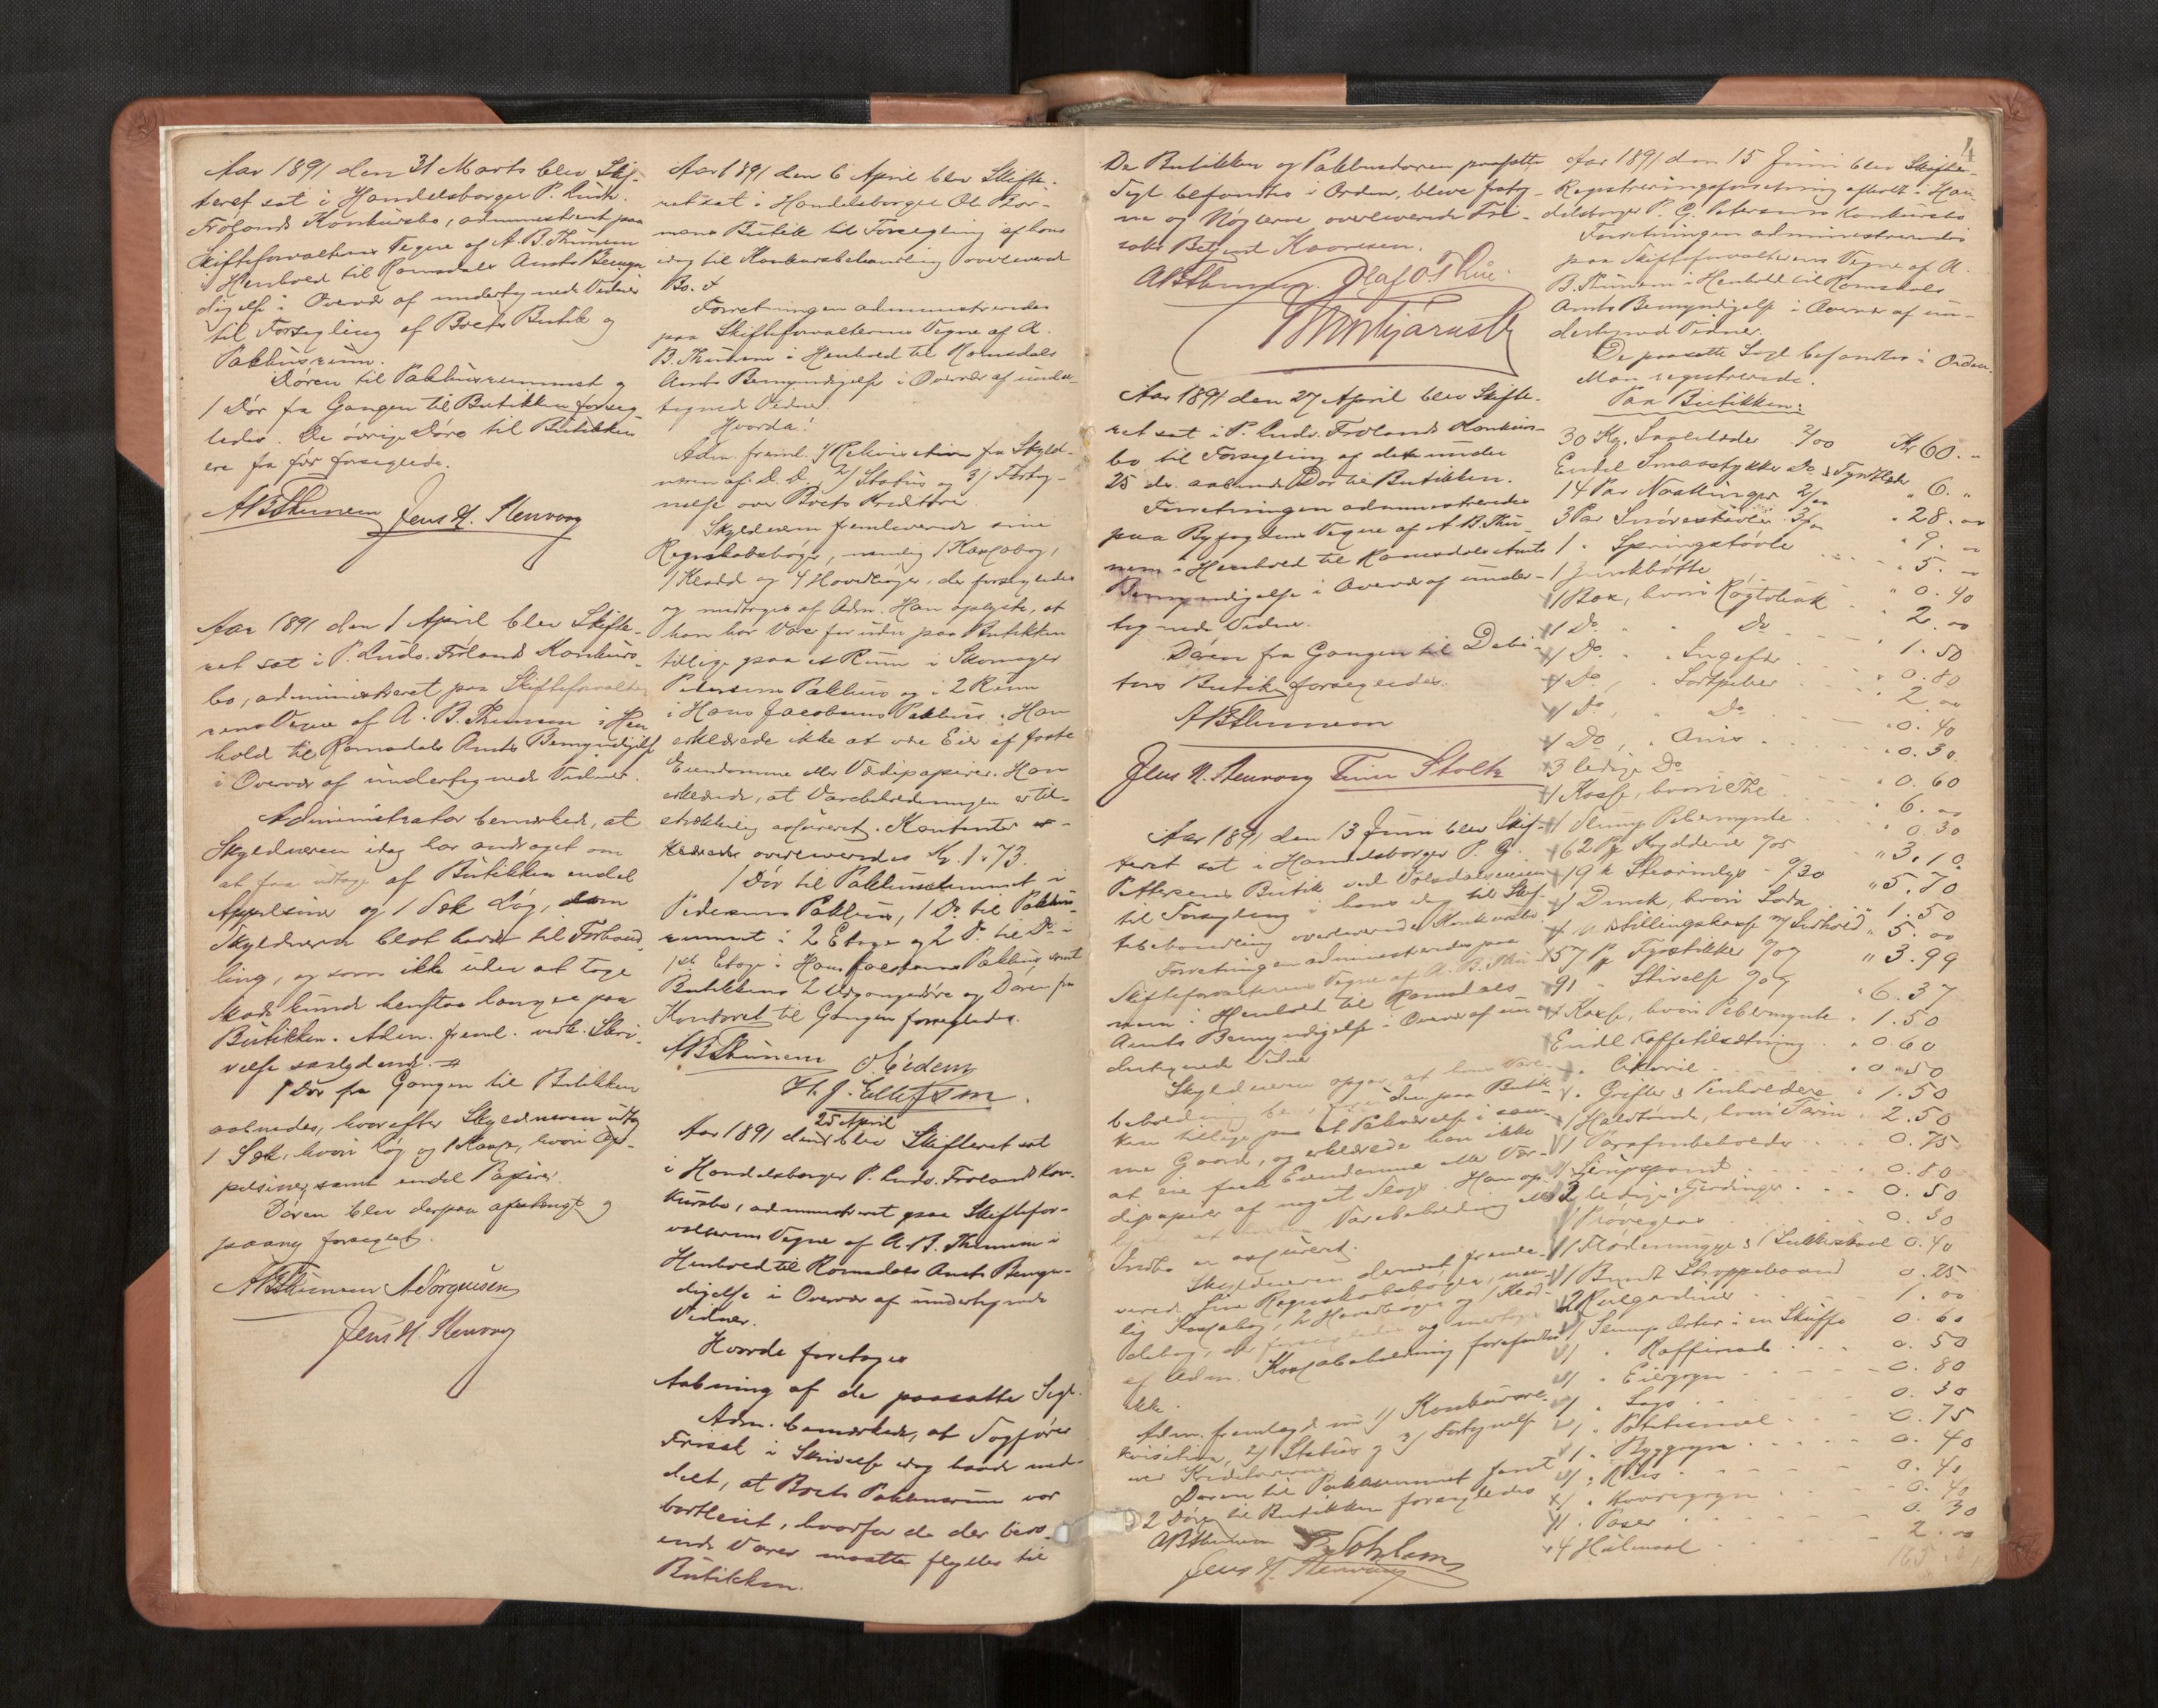 Aar 1891 den 31 Marts blev Skif-
teret sat i Handelsborger P. Ludv.
Frølands Konkursbo, administreret paa
Skifteforvalterens Vegne af A. B. Thunem
i Henhold til Romsdals Amts Bemyn
digelse i Overvær af undertegnede Vidner
til Forsegling af Boets Butik og
Pakhusrum.
Døren til Pakhusrummet og
1 Dør fra Gangen til Butikken forseg-
ledes. De øvrige Døre til Butikken
ere fra før forseglede.
ABThunem Jens H. Stenvaag
Aar 1891 den 1 April blev Skifte-
ret sat i P. Ludv. Frølands Konkurs-
bo, administreret paa Skifteforvalte
rens Vegne af A. B. Thunem i Hen
hold til Romsdals Amts Bemyndigelse
i Overvær af undertegnede Vidner.
Administrator bemærkede, at
Skyldneren idag har andraget om
at faa udtage af Butikken endel
Appelsiner og 1 Sæk Løg, som
Skyldneren blot havde til Forhand
ling, og som ikke uden at tage
Skade kunde henstaa længer paa
Butikken. Adm. freml. vedk. Skri-
velse saalydende
1 Dør fra Gangen til Butikken
aabnedes, hvorefter Skyldneren udtog
1 Sæk, hvori Løg og 1 Kasse, hvori Ap-
pelsiner, samt endel Papirer.
Døren blev derpaa afstængt og
paany forseglet.
ABThunem A Jørgensen
Jens H. Stenvaag
Aar 1891 den 6 April blev Skifte-
ret sat i Handelsborger Ol
mans Butik til Forsegling af hans
idag til Konkursbehandling overleverede
Bo.
Forretningen administreredes
paa Skifteforvalterens Vegne af A.
B. Thunem i Henhold til Romsdals
Amts Bemyndigelse i Overvær af under-
tegnede Vidner.
Hvorda!
Adm. freml. 1/ Rekvisition fra Skyld-
neren af D. D. 2/ Status og 3/ Forteg-
nelse over Boets Kreditorer
Skyldneren fremleverede sine
Regnskabsbøger, nemlig 1 Kassabog,
1 Kladd og 4 Hovedbøger, der forsegledes
og medtoges af Adm. Han oplyste, at
han har Varer foruden paa Butikken
tillige paa et Rum i Skomager
Petersens Pakhus og i 2 Rum
i Hans Jacobsens Pakhus. Han
erklærede ikke at være Eier af faste
Eiendomme eller Værdipapirer. Han
erklærede, at Varebeholdningen er til-
strækkelig assureret. Kontanter
overleveredes Kr. 1.73.
1 Dør til Pakhusrummet i
Petersens Pakhus, 1 Do til Pakhus
rummet i 2 Etage og 2 D. til Do i
1ste Etage i Hans Jacobsens Pakhus samt
Butikkens 2 Udgangsdøre og Døren fra
Kontoret til Gangen forsegledes.
ABThunem O. Eidem
H. J. Ellefsen.
25 April
Aar 1891 den blev Skifteret sat
i Handelsborger P. Ludv. Frølands Kon-
kursbo, administreret paa Skiftefor-
valterens Vegne af A. B. Thunem i
Henhold til Romsdals Amts Bemyn-
digelse i Overvær af undertegnede
Vidner.
Hvorda foretoges
Aabning af de paasatte Segl.
Adm. bemærkede, at Sagfører
i Skrivelse idag havde med-
delt, at Boets Pakhusrum var
bortleiet, hvorfor de der bero-
ende Varer maatte flyttes til
Butikken.
4
De Butikken og Pakhusdøren paasatte
Segl befandtes i Orden, bleve fratag-
ne og Nøglerne overleverede
Betjent Kaaresen.
ABThunem. Olaf O. Thue.
Aar 1891 den 27 April blev Skifte-
ret sat i P. Ludv. Frølands Konkurs-
bo til Forsegling af den under
25 ds. aabnede Dør til Butikken.
Forretningen administreredes
paa Byfogdens Vegne af A. B. Thu-
nem i Henhold til Romsdals Amts
Bemyndigelse i Overvær af under-
tegnede Vidner.
Døren fra Gangen til Debi-
tors Butik forsegledes.
ABThunem
Jens H. Stenvaag Stoltz
Aar 1891 den 13 Juni blev Skif-
teret sat i Handelsborger P. G.
Pettersens Butik ved Volsdalsveien
til Forsegling i hans idag til Skif-
tebehandling overleverede Konkursbo.
Forretningen administreredes paa
Skifteforvalterens Vegne af A. B. Thu-
nem i Henhold til Romsdals
Amts Bemyndigelse i Overvær af un-
dertegnede Vidner.
Skyldneren opgav at hans Vare-
beholdning foruden paa Butik-
ken tillige paa et Pakværelse i sam-
me Gaard, og erklærede han ikke
at eie faste Eiendomme eller Vær-
dipapirer af noget Slags. Han op-
Varebeholdning eller
Indbo er assureret.
Skyldneren dernæst fremle-
verede sine Regnskabsbøger, nem-
lig Kassabog, 2 Hovedbøger og 1 Klad-
debog, der forsegledes og medtoges
af Adm. Kassabeholdning forefandtes
ikke.
Adm. fremlagde nu 1/ Konkursre-
kvisition, 2/ Status og 3/ Fortegnelse
over Kreditorerne.
Døren til Pakrummet samt
2 Døre til Butikken forsegledes
ABThunem
Jens H. Stenvaag
Aar 1891 den 15 Juni blev Skifte-
Registreringsforretning afholdt i Han-
delsborger P. G. Petersens Konkursbo
Forretningen administreredes
paa Skifteforvalterens Vegne af A.
B. Thunem i Henhold til Romsdals
Amts Bemyndigelse i Overvær af un-
dertegnede Vidner.
De paasatte Segl befandtes i Orden.
Man registrerede.
Paa Butikken:
30 Kg. Saalelæder 2/00 Kr 60. "
Endel Smaastykker Do & Tyndlæder " 6. "
14 Par 2/00 " 28. 00
3 Par Snørestøvler 3/00 " 9. 00
1 " Springstøvle " 5. 00
1 Zinkbøtte " 0. 40
1 Box, hvori Røgtobak " 2. 00
1 Do " Do 1. 50
1 Do " Ingefær " 0. 80
1 Do, " Sortpeber 2. 00
1 Do, " Do " 0. 40
1 Do, " Anis " 0. 30
3 ledige Do " 0. 60
1 Kasse, hvori The " 6. 00
1 Slump Pebermynte " 0. 30
62 Pk Krydderier 7/05 " 3. 10
19 k Stearinlys 0/30 " 5. 70
1 Dunk, hvori Soda " 1. 50
1 Udstillingskasse m/ Indhold " 5. 00
57 Pk Fyrstikker 0/07 " 3. 99
91 " Stivelse 0/07 " 6. 37
1 Kasse, hvori Pebermynte " 1. 50
Endel Kaffetilsætning " 0. 60
" Cikorie " 0. 50
" Grifler & Penholdere " 1. 50
1 Halvtønde, hvori Farin " 2. 50
1 Parafinbeholder 0. 75
1 Sirupspand 0. 80
2 ledige Fjerdinger 0. 50
1 Prøveglas 0. 30
1 Flødemugge & 1 Sukkerskaal 0. 40
1 Bundt Stroppebaand 0. 25
2 Rulgardiner 1. 00
1 Slump Erter i en Skuffe 0. 60
1 " Raffinade 0. 50
1 " 0. 80
1 " Sago 0. 30
1 " Potetesmel 0. 75
1 " Byggryn 0. 40
1 " Riis 0. 40
1 " Havregryn 0. 40
1 " Poser 0. 30
4 2. 00